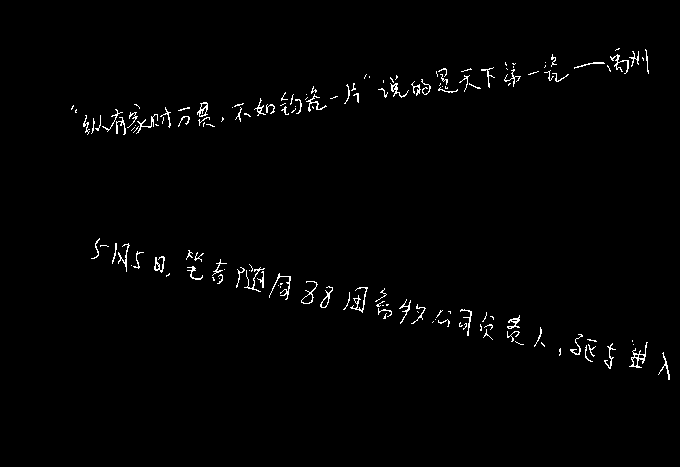 “纵有家财万贯，不如钧瓷一片”说的是天下第一瓷——禹州
5月5日，笔者随同88团畜牧公司负责人，驱车进入